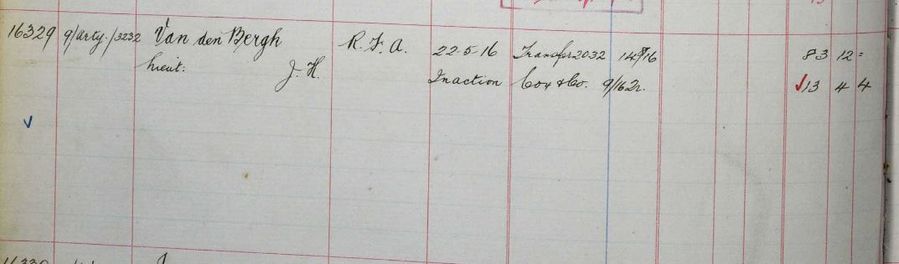 16329 9/Arty./3232 Van den Bergh R. F. A. 22-5-16 Transfer 2032 14/7/16 83 12 =
Lieut: J. H. In action Cox & Co. 9/16 Dr. ✓13 4 4